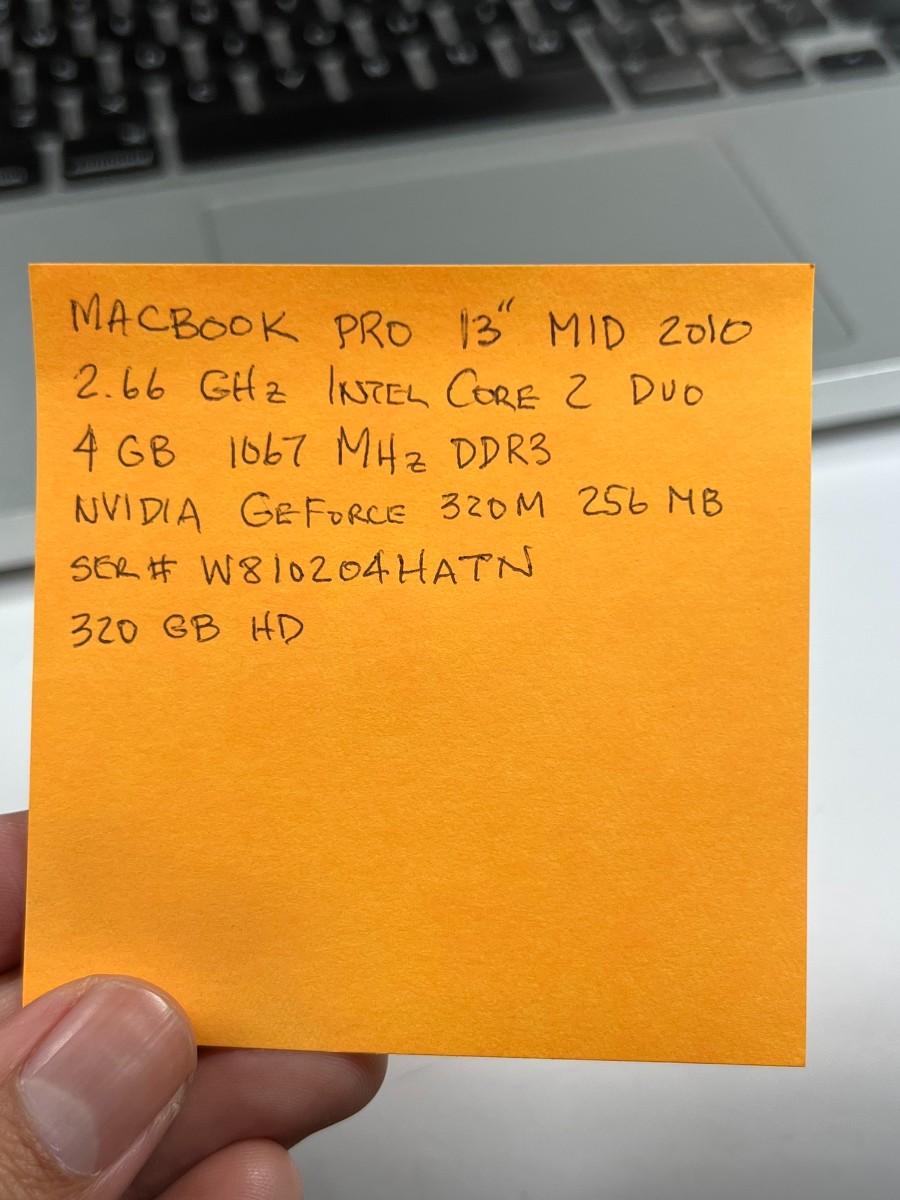 MACBOOK PRO 13" MID 2010
2.66 GHz INTEL CORE 2 DUO
4 GB 1067 MHz DDR3
NVIDIA GEFORCE 320M 256 MB
SER# W810204HATN
320 GB HD